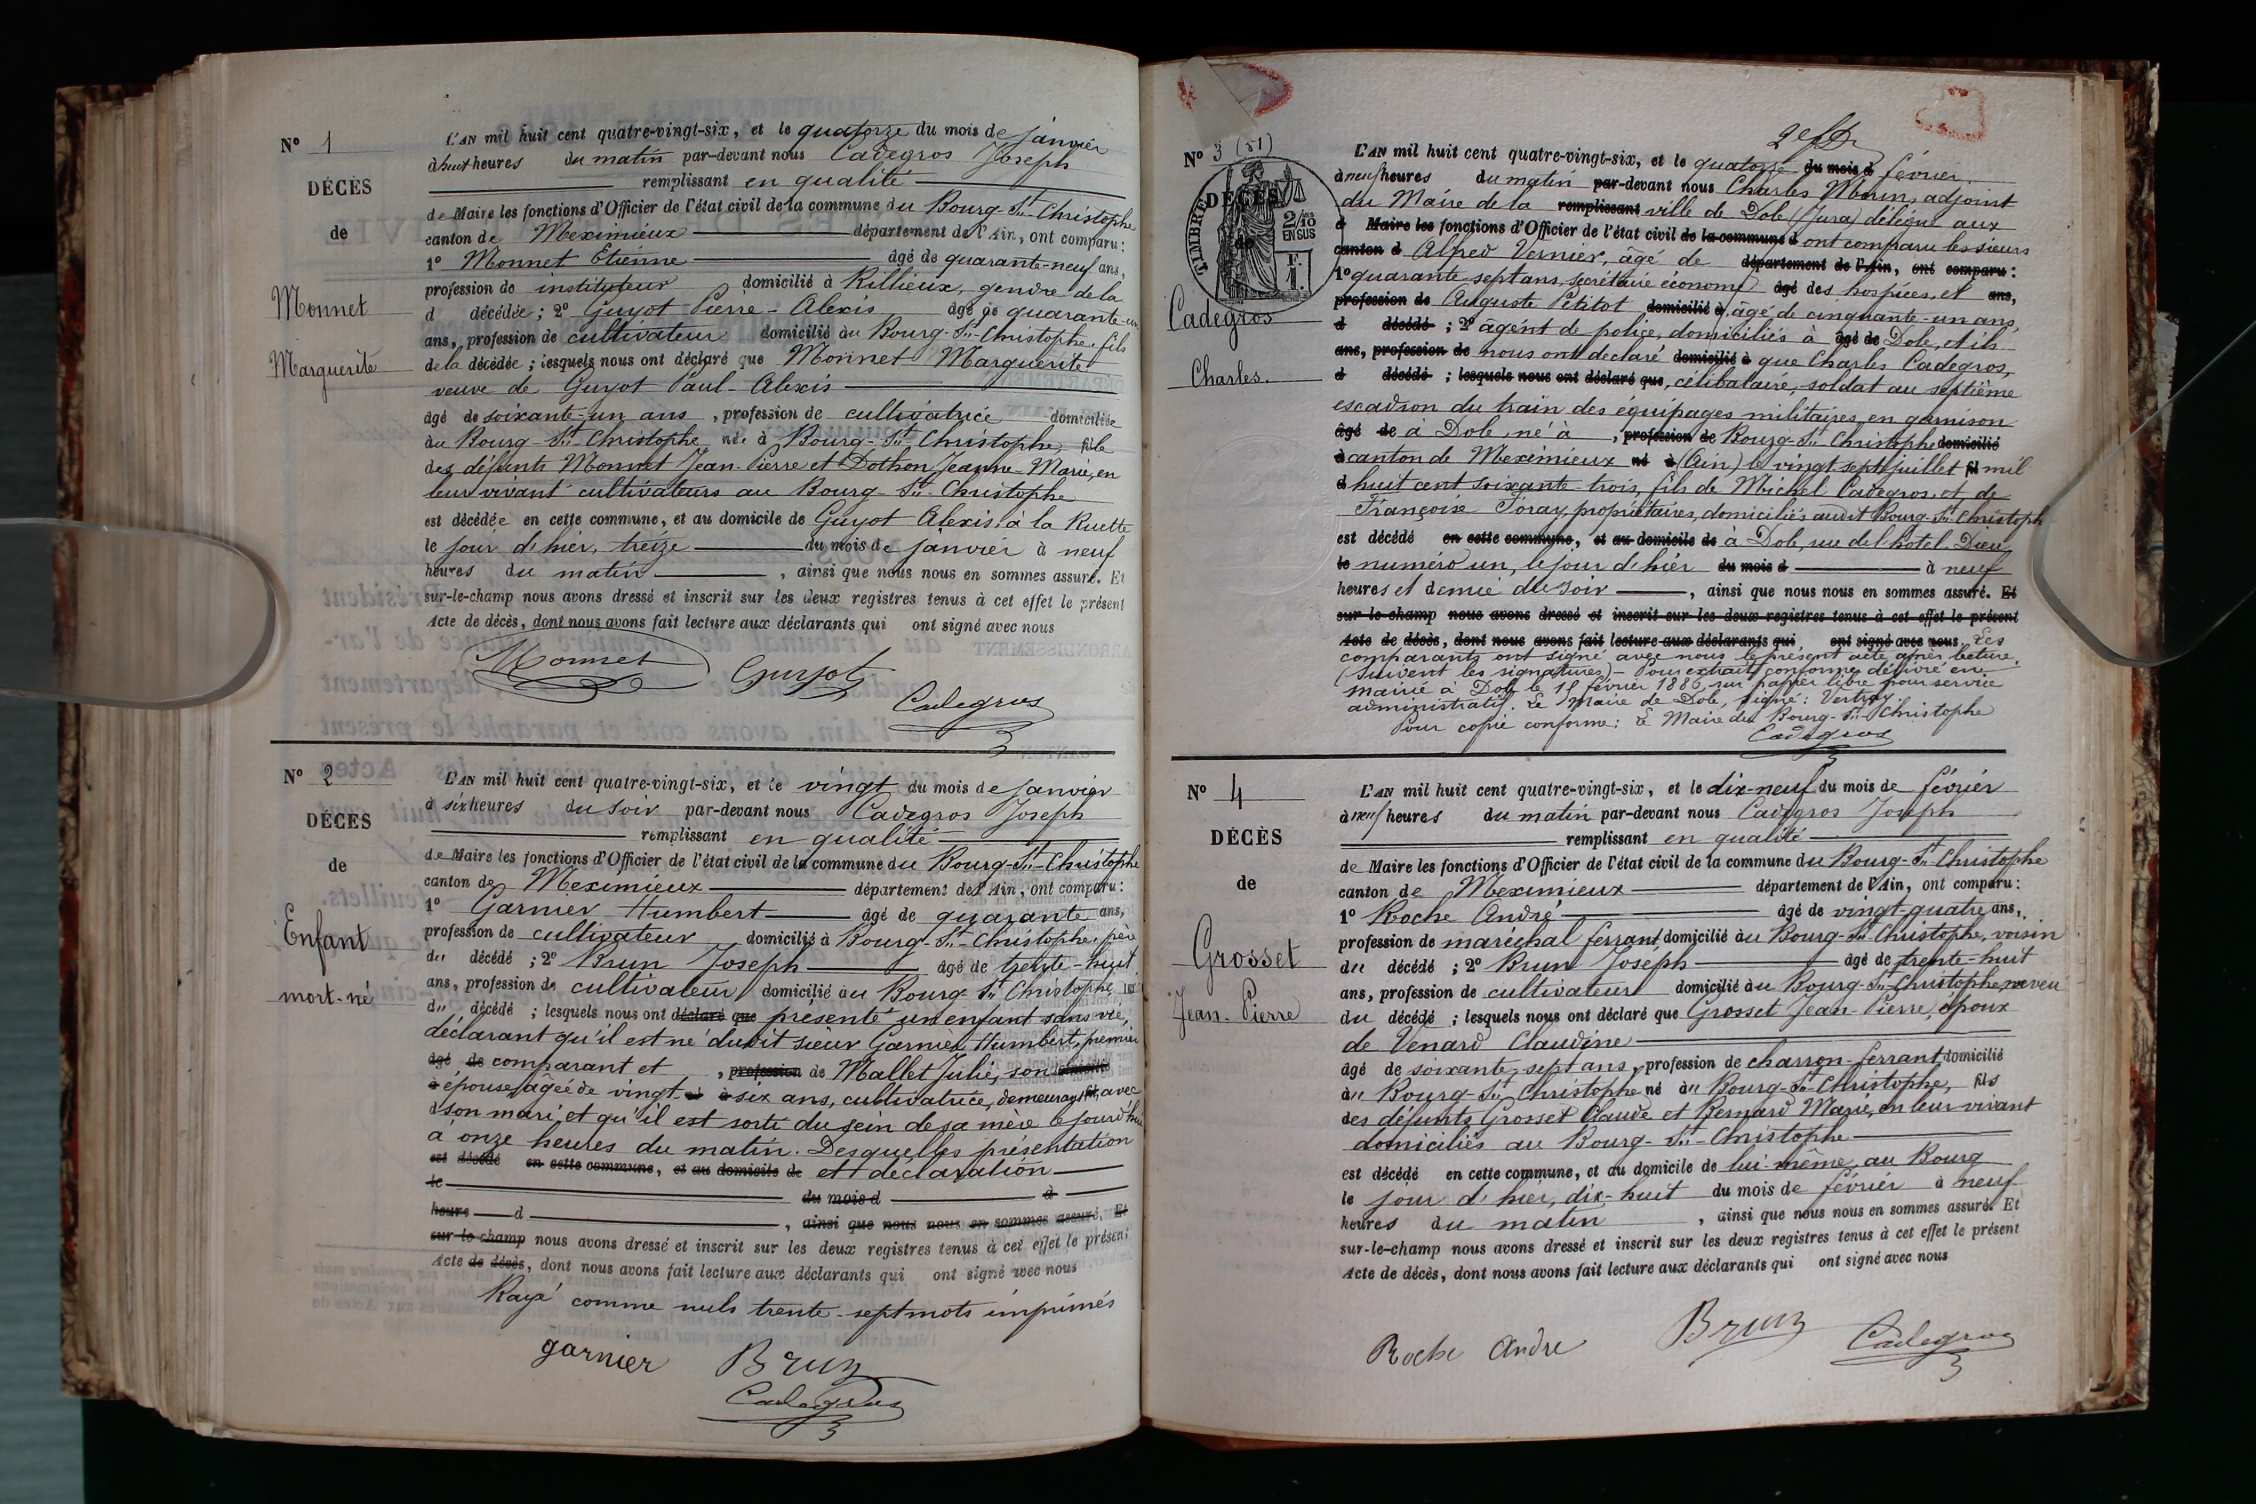 N° 1
DÉCÈS
de
Monnet
Marguerite
L'AN mil huit cent quatre-vingt-six, et le quatorze du mois de janvier
à huit heures du matin par-devant nous Cadegros Joseph
remplissant en qualité
de Maire les fonctions d'Officier de l'état civil de la commune du Bourg-St-Christophe
canton de Meximieux département de l'Ain, ont comparu:
1° Monnet Etienne âgé de quarante-neuf ans,
profession de instituteur domicilié à Rillieux, gendre de la
d décédée; 2° Guyot Pierre-Alexis âgé de quarante-un
ans, profession de cultivateur domicilié au Bourg-St-Christophe, fils
de la décédée; lesquels nous ont déclaré que Monnet Marguerite
veuve de Guyot Paul-Alexis
âgé de soixante-un ans, profession de cultivatrice domiciliée
au Bourg-St-Christophe née à Bourg-St-Christophe, fille
des défunts Monnet Jean-Pierre et Dothon Jeanne-Marie, en
leur vivant cultivateurs au Bourg-St-Christophe
est décédée en cette commune, et au domicile de Guyot Alexis à la Ruette
le jour d'hier, treize du mois de janvier à neuf
heures du matin, ainsi que nous nous en sommes assuré. Et
sur-le-champ nous avons dressé et inscrit sur les deux registres tenus à cet effet le présent
Acte de décès, dont nous avons fait lecture aux déclarants qui ont signé avec nous
Monnet Guyot
Cadegros
N° 2
DÉCÈS
de
Enfant
mort-né
L'AN mil huit cent quatre-vingt-six, et le vingt du mois de janvier
à six heures du soir par-devant nous Cadegros Joseph
remplissant en qualité
de Maire les fonctions d'Officier de l'état civil de la commune du Bourg-St-Christophe
canton de Meximieux département de l'Ain, ont comparu:
1° Garnier Humbert âgé de quarante ans,
profession de cultivateur domicilié à Bourg-St-Christophe, père
du décédé; 2° Brun Joseph âgé de trente-huit
ans, profession de cultivateur domicilié au Bourg St Christophe
du décédé; lesquels nous ont déclaré que présenté un enfant sans vie,
déclarant qu'il est né dudit sieur Garnier Humbert, premier
âgé de comparant et, profession de Mallet Julie, son
à épouse, âgée de vingt né à six ans, cultivatrice, demeurant avec
d son mari, et qu'il est sorti du sein de sa mère le jour d'hui
à onze heures du matin. Desquelles présentation
est décédé en cette commune, et au domicile de et déclaration
le du mois d à
heure d, ainsi que nous nous en sommes assuré. Et
sur-le-champ nous avons dressé et inscrit sur les deux registres tenus à cet effet le présent
Acte de décès, dont nous avons fait lecture aux déclarants qui ont signé avec nous
Rayé comme nuls trente-sept mots imprimés
garnier Brun
Cadegros
N° 3 (81)
DÉCÈS
de
TIMBRE
2/10
EN SUS
F.
1.
Cadegros
Charles.
L'AN mil huit cent quatre-vingt-six, et le quatorze du mois d février
à neuf heures du matin par-devant nous Charles Morin, adjoint
du Maire de la remplissant ville de Dole (Jura) délégué aux
d Maire les fonctions d'Officier de l'état civil de la commune d ont comparu les sieurs
canton d Alfred Vernier, âgé de département de l'Ain, ont comparu:
1° quarante sept ans, secrétaire économe âgé des hospices, et ans,
profession de Auguste Petitot domicilié à, âgé de cinquante-un ans,
d décédé; 2° agent de police, domiciliés à âgé de Dole, et ils
ans, profession de nous ont déclaré domicilié à que Charles Cadegros,
d décédé; lesquels nous ont déclaré que, célibataire, soldat au septième
escadron du train des équipages militaires, en garnison
âgé de à Dole, né à, profession de Bourg-St-Christophe domicilié
à canton de Meximieux né à (Ain) le vingt sept juillet fil mil
d huit cent soixante-trois, fils de Michel Cadegros et de
Françoise Foray, propriétaires, domiciliés audit Bourg-St-Christoph
est décédé en cette commune, et au domicile de à Dole, rue de l'hotel Dieu
le numéro un, le jour d'hier du mois d à neuf
heures et demie du soir, ainsi que nous nous en sommes assuré. Et
sur-le-champ nous avons dressé et inscrit sur les deux registres tenus à cet effet le présent
Acte de décès, dont nous avons fait lecture aux déclarants qui ont signé avec nous. Les
comparants ont signé avec nous le présent acte après lecture.
(Suivent les signatures) - Pour extrait conforme délivré en
mairie à Dole le 15 février 1886, sur papier libre pour service
administratif. Le Maire de Dole, signé:
Pour copie conforme: Le Maire du Bourg-St-Christophe
Cadegros
N° 4
DÉCÈS
de
Grosset
Jean-Pierre
L'AN mil huit cent quatre-vingt-six, et le dix-neuf du mois de février
à neuf heures du matin par-devant nous Cadegros Joseph
remplissant en qualité
de Maire les fonctions d'Officier de l'état civil de la commune du Bourg-St-Christophe
canton de Meximieux département de l'Ain, ont comparu:
1° Roche André âgé de vingt-quatre ans,
profession de maréchal ferrant domicilié au Bourg-St-Christophe, voisin
du décédé; 2° Brun Joseph âgé de trente-huit
ans, profession de cultivateur domicilié au Bourg-St-Christophe, neveu
du décédé; lesquels nous ont déclaré que Grosset Jean-Pierre, époux
de Venard Claudine
âgé de soixante-sept ans, profession de charron-ferrant domicilié
au Bourg-St-Christophe né au Bourg-St-Christophe, fils
des défunts Grosset Claude et Bernard Marie, en leur vivant
domiciliés au Bourg-St-Christophe
est décédé en cette commune, et au domicile de lui-même, au Bourg
le jour d'hier, dix-huit du mois de février à neuf
heures du matin, ainsi que nous nous en sommes assuré. Et
sur-le-champ nous avons dressé et inscrit sur les deux registres tenus à cet effet le présent
Acte de décès, dont nous avons fait lecture aux déclarants qui ont signé avec nous
Roche André Brun Cadegros